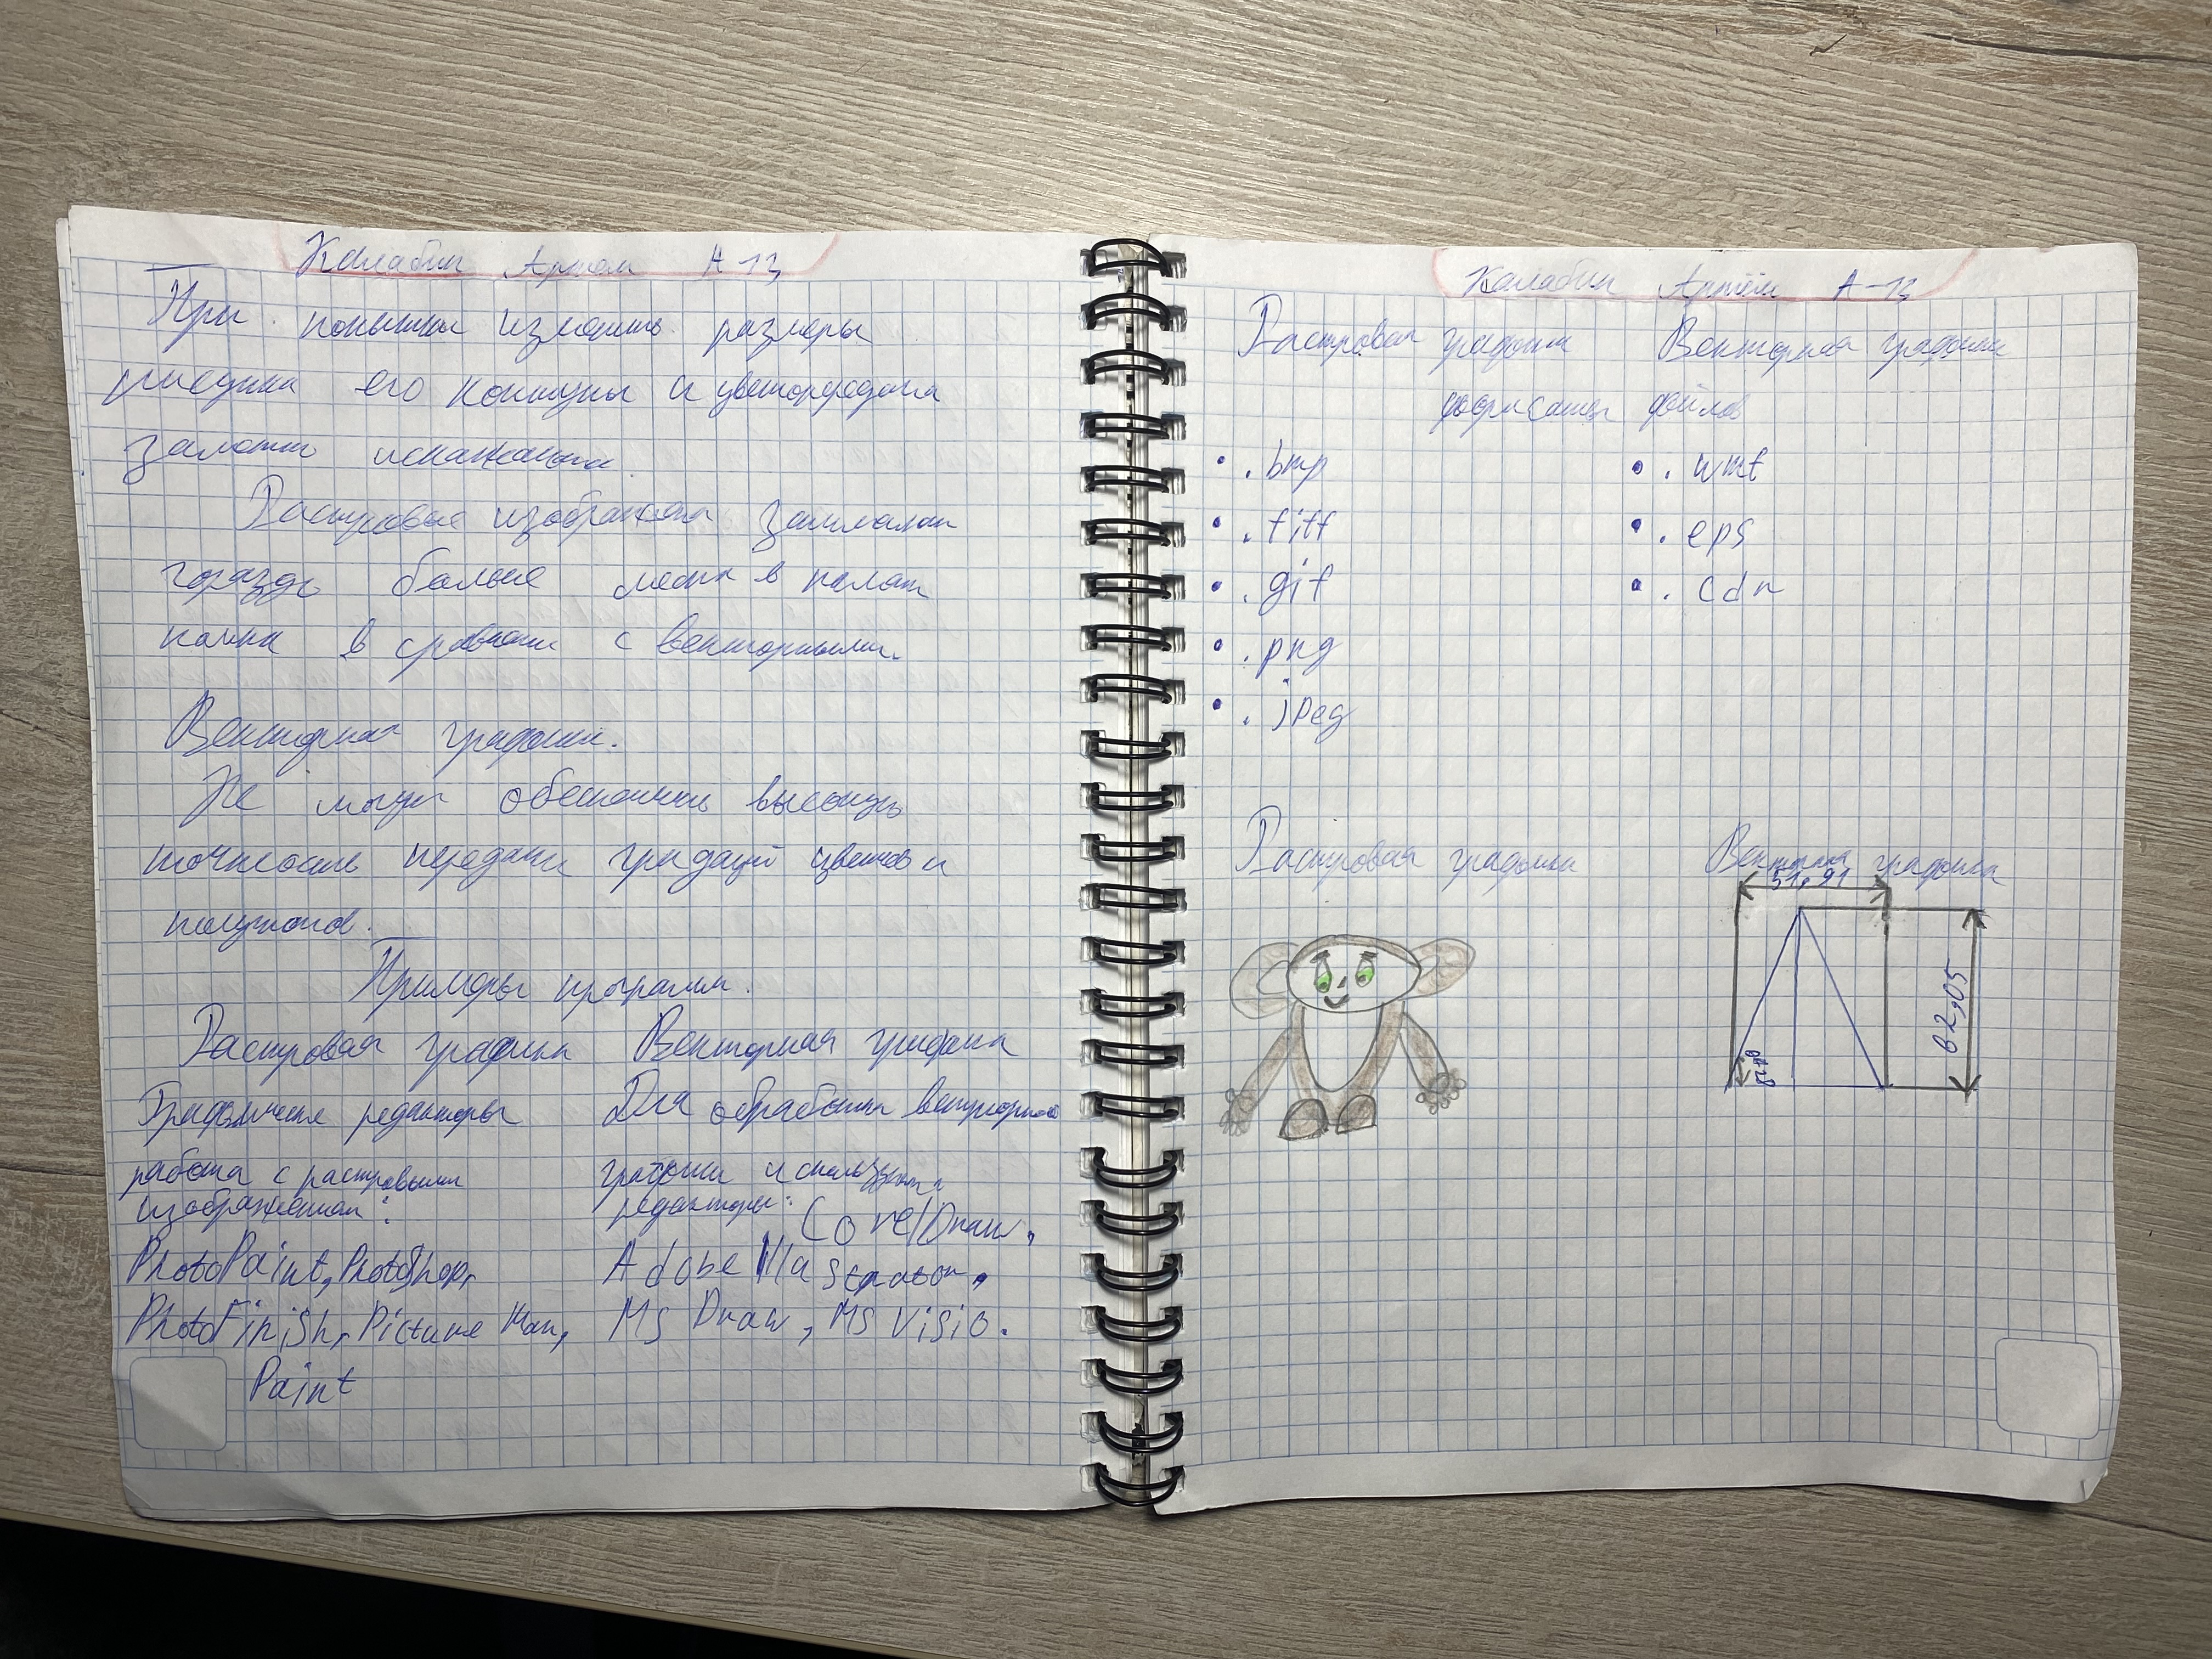 Калабин Артём А-13
При попытки изменить размеры
рисунка его контуры и цветопередача
заметно искажена.
Растровые изображения занимают
гораздо больше места в памяти
компа в сравнении с векторными.
Векторная графика.
Не могут обеспечить высокую
точность передачи градаций цветов и
полутонов.
Примеры программ.
Растровая графика Векторная графика
Графические редакторы Для обработки векторной
работа с растровыми графики использует
изображениями: редакторы: CorelDraw,
PhotoPaint, PhotoShop, Adobe
PhotoFinish, Picture Man, Ms Draw, Ms Visio.
Paint
Калабин Артём А-13
Растровая графика Векторная графика
форматы файлов
• .bmp • .wmf
• .tiff • .eps
• .gif • .cdr
• .png
• .jpeg
Растровая графика Векторная графика
51,91
62,05